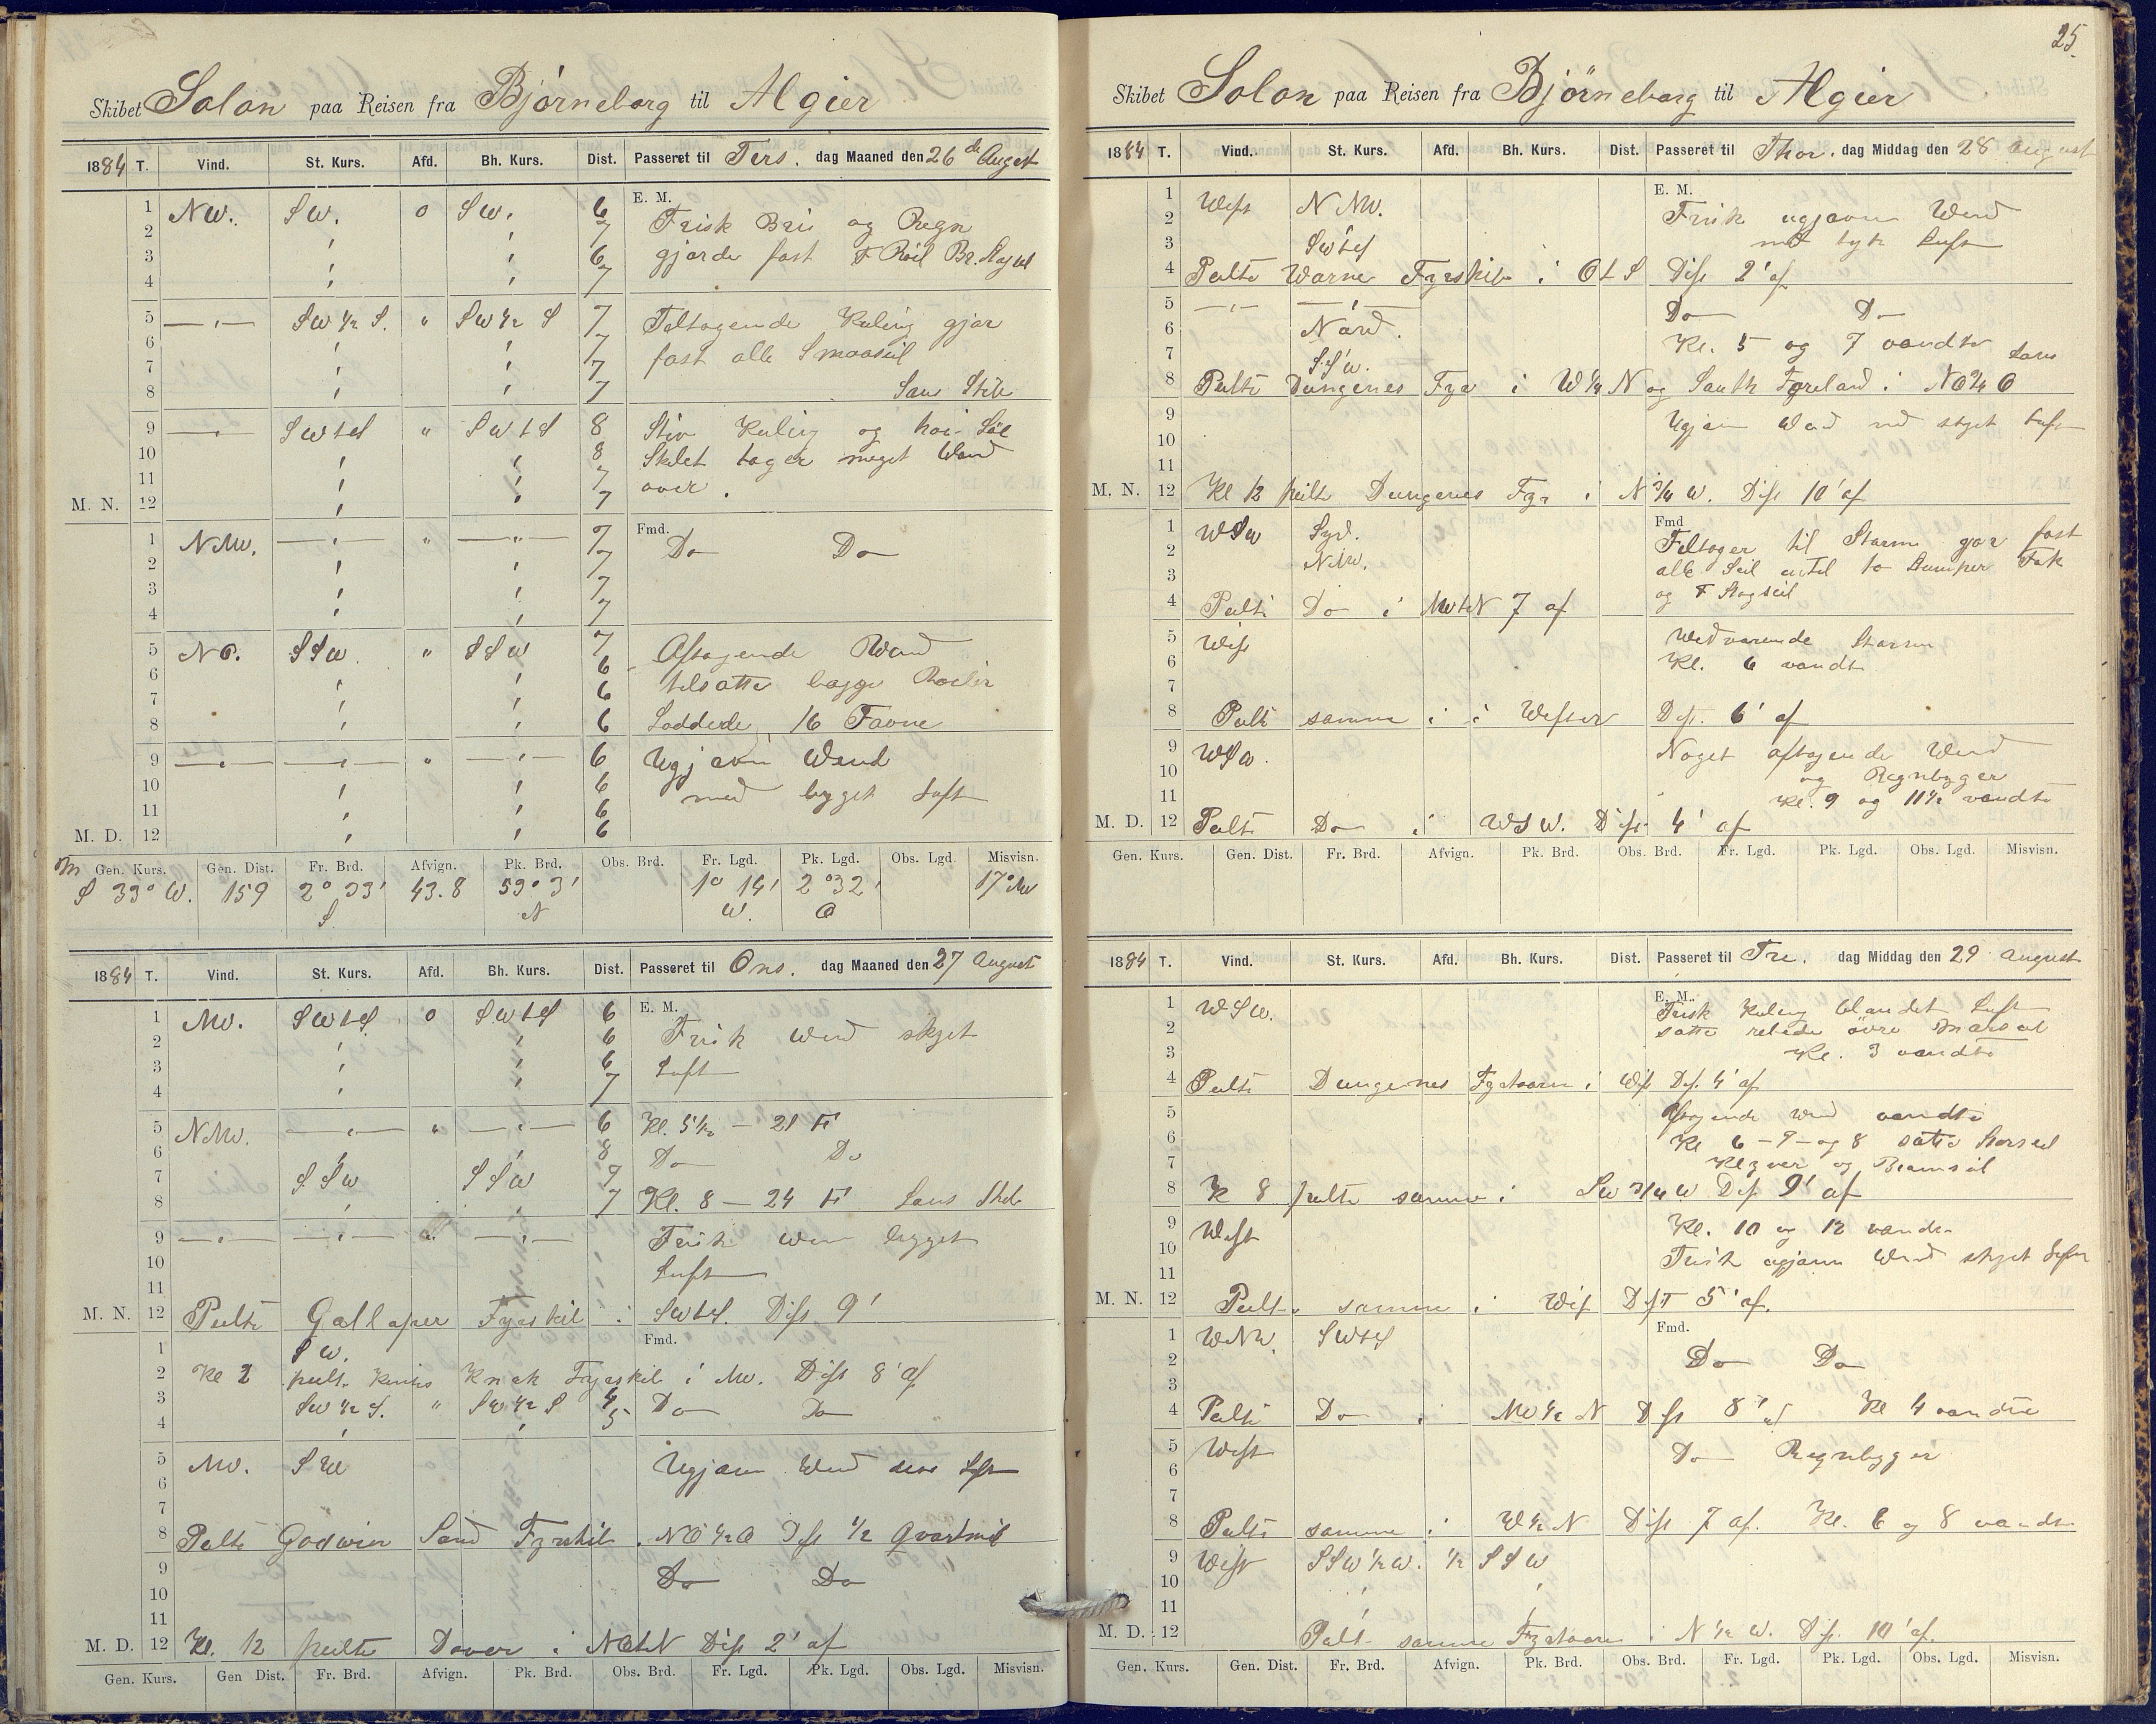 Skibet Solon paa Reisen fra Bjørneborg til Algier
1884 T. Vind. St. Kurs. Afd. Bh. Kurs. Dist. Passeret til Tirs. dag Maaned den 26de August
E. M.
1 NW. SW. 0 SW. 6 Frisk Bris og Regn
2 " " 7
3 " " 6 gjorde fast F Røil Br. Stagseil
4 " " 7
5 —"— SW ½ S. " SW ½ S 7 Tiltagende Kuling gjør
6 " " 7 fast alle Smaaseil
7 " " 7
8 " " 7 Lens Skib
9 —"— SWtS " SWtS 8 Stiv Kuling og høi Søe
10 " " 8 Skibet tager meget Vand
11 " " 7 over.
M. N. 12 " " 7
Fmd.
1 NNW. —"— " —"— 7 Do Do
2 " " 7
3 " " 7
4 " " 7
5 NO. SSW. " SSW 7 Aftagende Wind
6 " " 6 tilsatte begge Røiler
7 " " 6
8 " " 6 Loddede 16 Favne
9 —"— —"— " —"— 6 Ugjævn Wind
10 " " 6 med bygget Luft
11 " " 6
M. D. 12 " " 6
Gen. Kurs. Gen. Dist. Fr. Brd. Afvign. Pk. Brd. Obs. Brd. Fr. Lgd. Pk. Lgd. Obs. Lgd. Misvisn.
S 33° W. 159 2° 33' 43.8 53° 3' 1° 14' 2° 32' 17° NW
S. N W. O
1884 T. Vind. St. Kurs. Afd. Bh. Kurs. Dist. Passeret til Ons. dag Maaned den 27 August
E. M.
1 NW. SWtS 0 SWtS 6
2 " " 6 Frisk Wind skyet
3 " " 6 Luft
4 " " 7
5 NNW. —"— " —"— 6 Kl. 5½ — 21 F
6 8 Do Do
7 SSW SSW 7
8 " " 7 Kl. 8 — 24 F Lens Skib
9 —"— —"— " —"— Frisk Wind bygget
10 Luft
11
M. N. 12 Peilte Galloper Fyrskib i SWtS. Dist 9'
Fmd.
1 SW.
2 Kl 2 peilte Kentis Knok Fyrskib i NW. Dist 8' af
3 SW ½ S. " SW ½ S 4 Do Do
4 " " 5
5 NW. SW Ugjævn Wind Luft
6
7
8 Peilte Godwin Sand Fyrskib i NO ½ O Dist ½ Qvartmil
9 Do Do
10
11
M. D. 12 Kl. 12 peilte Dover i NOtN Dist 2' af
Gen. Kurs. Gen Dist. Fr. Brd. Afvign. Pk. Brd. Obs. Brd. Fr. Lgd. Pk. Lgd. Obs. Lgd. Misvisn.
25
Skibet Solon paa Reisen fra Bjørneborg til Algier
1884 T. Vind. St. Kurs. Afd. Bh. Kurs. Dist. Passeret til Thor. dag Middag den 28 August
E. M.
1 West NNW. Frisk ugjævn Wind
2 med tyk Luft
3 SWtS
4 Peilte Warne Fyrskib i OtS Dist 2' af
5 —"— —"— Do Do
6 Nord.
7 SSW. Kl. 5 og 7 vandte
8 Peilte Dungenes Fyr i W ¼ N og South Foreland i NO ¾ O
9 Ugjævn Wind med skyet Luft
10
11
M. N. 12 Kl 12 peilte Dungenes Fyr i N ¾ W. Dist 10' af
Fmd
1 WSW Syd. Tiltager til Storm gør fast
2 NNW. alle Seil indtil to Stumper Fok
3 og F Stagseil
4 Peilte Do i NWtN 7 af
5 West Wedvarende Storm
6 Kl. 6 vandte
7
8 Peilte samme i i Wester Dist. 6' af
9 WSW. Noget aftagende Wind
10 og Regnbyger
11 Kl. 9 og 11½ vandte
M. D. 12 Peilte Do i WSW. Dist 4' af
Gen. Kurs. Gen. Dist. Fr. Brd. Afvign. Pk. Brd. Obs. Brd. Fr. Lgd. Pk. Lgd. Obs. Lgd. Misvisn.
1884 T. Vind. St. Kurs. Afd. Bh. Kurs. Dist. Passeret til Fre. dag Middag den 29 August
E. M.
1 WSW. Frisk Kuling blandet Luft
2 satte rebede övre Mærseil
3 Kl. 3 vandte
4 Peilte Dungenes Fyrtaarn i West Dist. 4' af
5 Aftagende Wind vandte
6 Kl 6 – 7 – og 8 satte Storseil
7 Klyver og Bramseil
8 K 8 peilte samme i SW ¾ W Dist 9' af
9 West Kl. 10 og 12 vandte
10 Frisk ugjævn Wind skyet Luft
11
M. N. 12 Peilte samme i West Dist 5' af.
Fmd.
1 WNW. SWtS
2 Do Do
3
4 Peilte Do i NW ½ N Dist 8' af Kl 4 vandte
5 West Do Regnbyger
6
7
8 Peilte samme i W ½ N Dist 7 af. Kl. 6 og 8 vandte
9 West SSW ½ W. ½ SSW
10 " "
11 " "
M. D. 12 Peilte samme Fyrtaarn i N ½ W. Dist. 10' af.
Gen. Kurs. Gen. Dist. Fr. Brd. Afvign. Pk. Brd. Obs. Brd. Fr. Lgd. Pk. Lgd. Obs. Lgd. Misvisn.